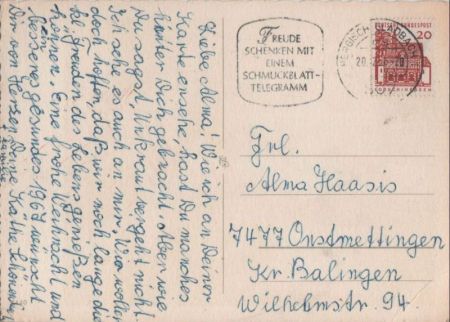 Liebe Alma! Wie ich an Deiner
Karte ersehe, hast Du manches
hinter Dich gebracht. Aber wie
Du sagst, Unkraut vergeht nicht.
Ich sehe es auch an mir. Wir wollen
doch hoffen, daß wir noch lang die
Freuden des Lebens genießen
können. Eine frohe Weihnacht und
besseres gesundes 1967 wünscht
Dir von Herzen Deine Käthe
FREUDE
SCHENKEN MIT
EINEM
SCHMUCKBLATT-
TELEGRAMM
BERGISCH GLADBACH
DEUTSCHE BUNDESPOST
20
Frl.
Alma Haasis
7477 Onstmettingen
Kr. Balingen
Wilhelmstr. 94.